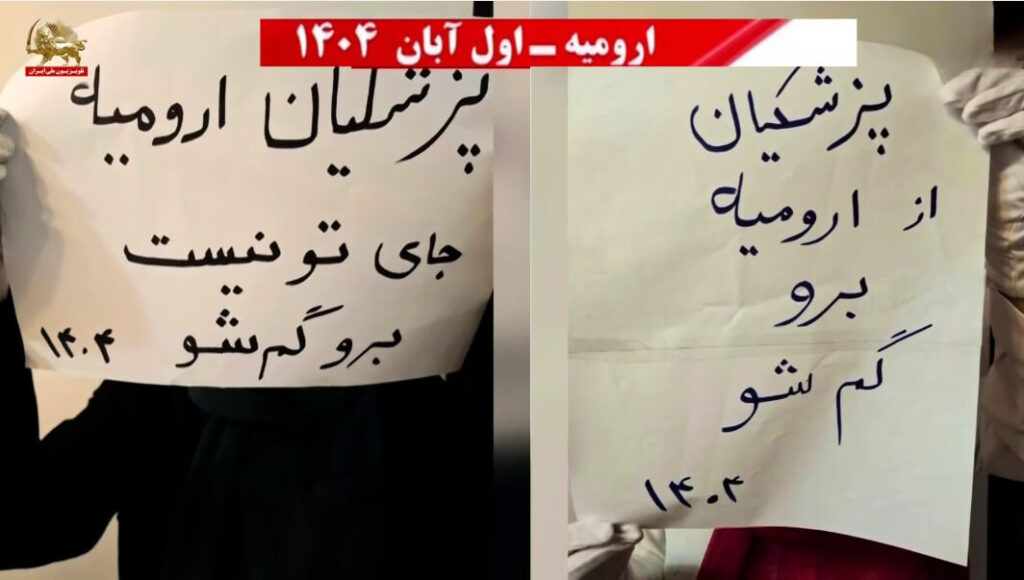 تلویزیون ملی ایران
ارومیه – اول آبان ۱۴۰۴
پزشکیان ارومیه
جای تو نیست
برو گم شو
۱۴۰۴
پزشکیان
از ارومیه
برو
گم شو
۱۴۰۴